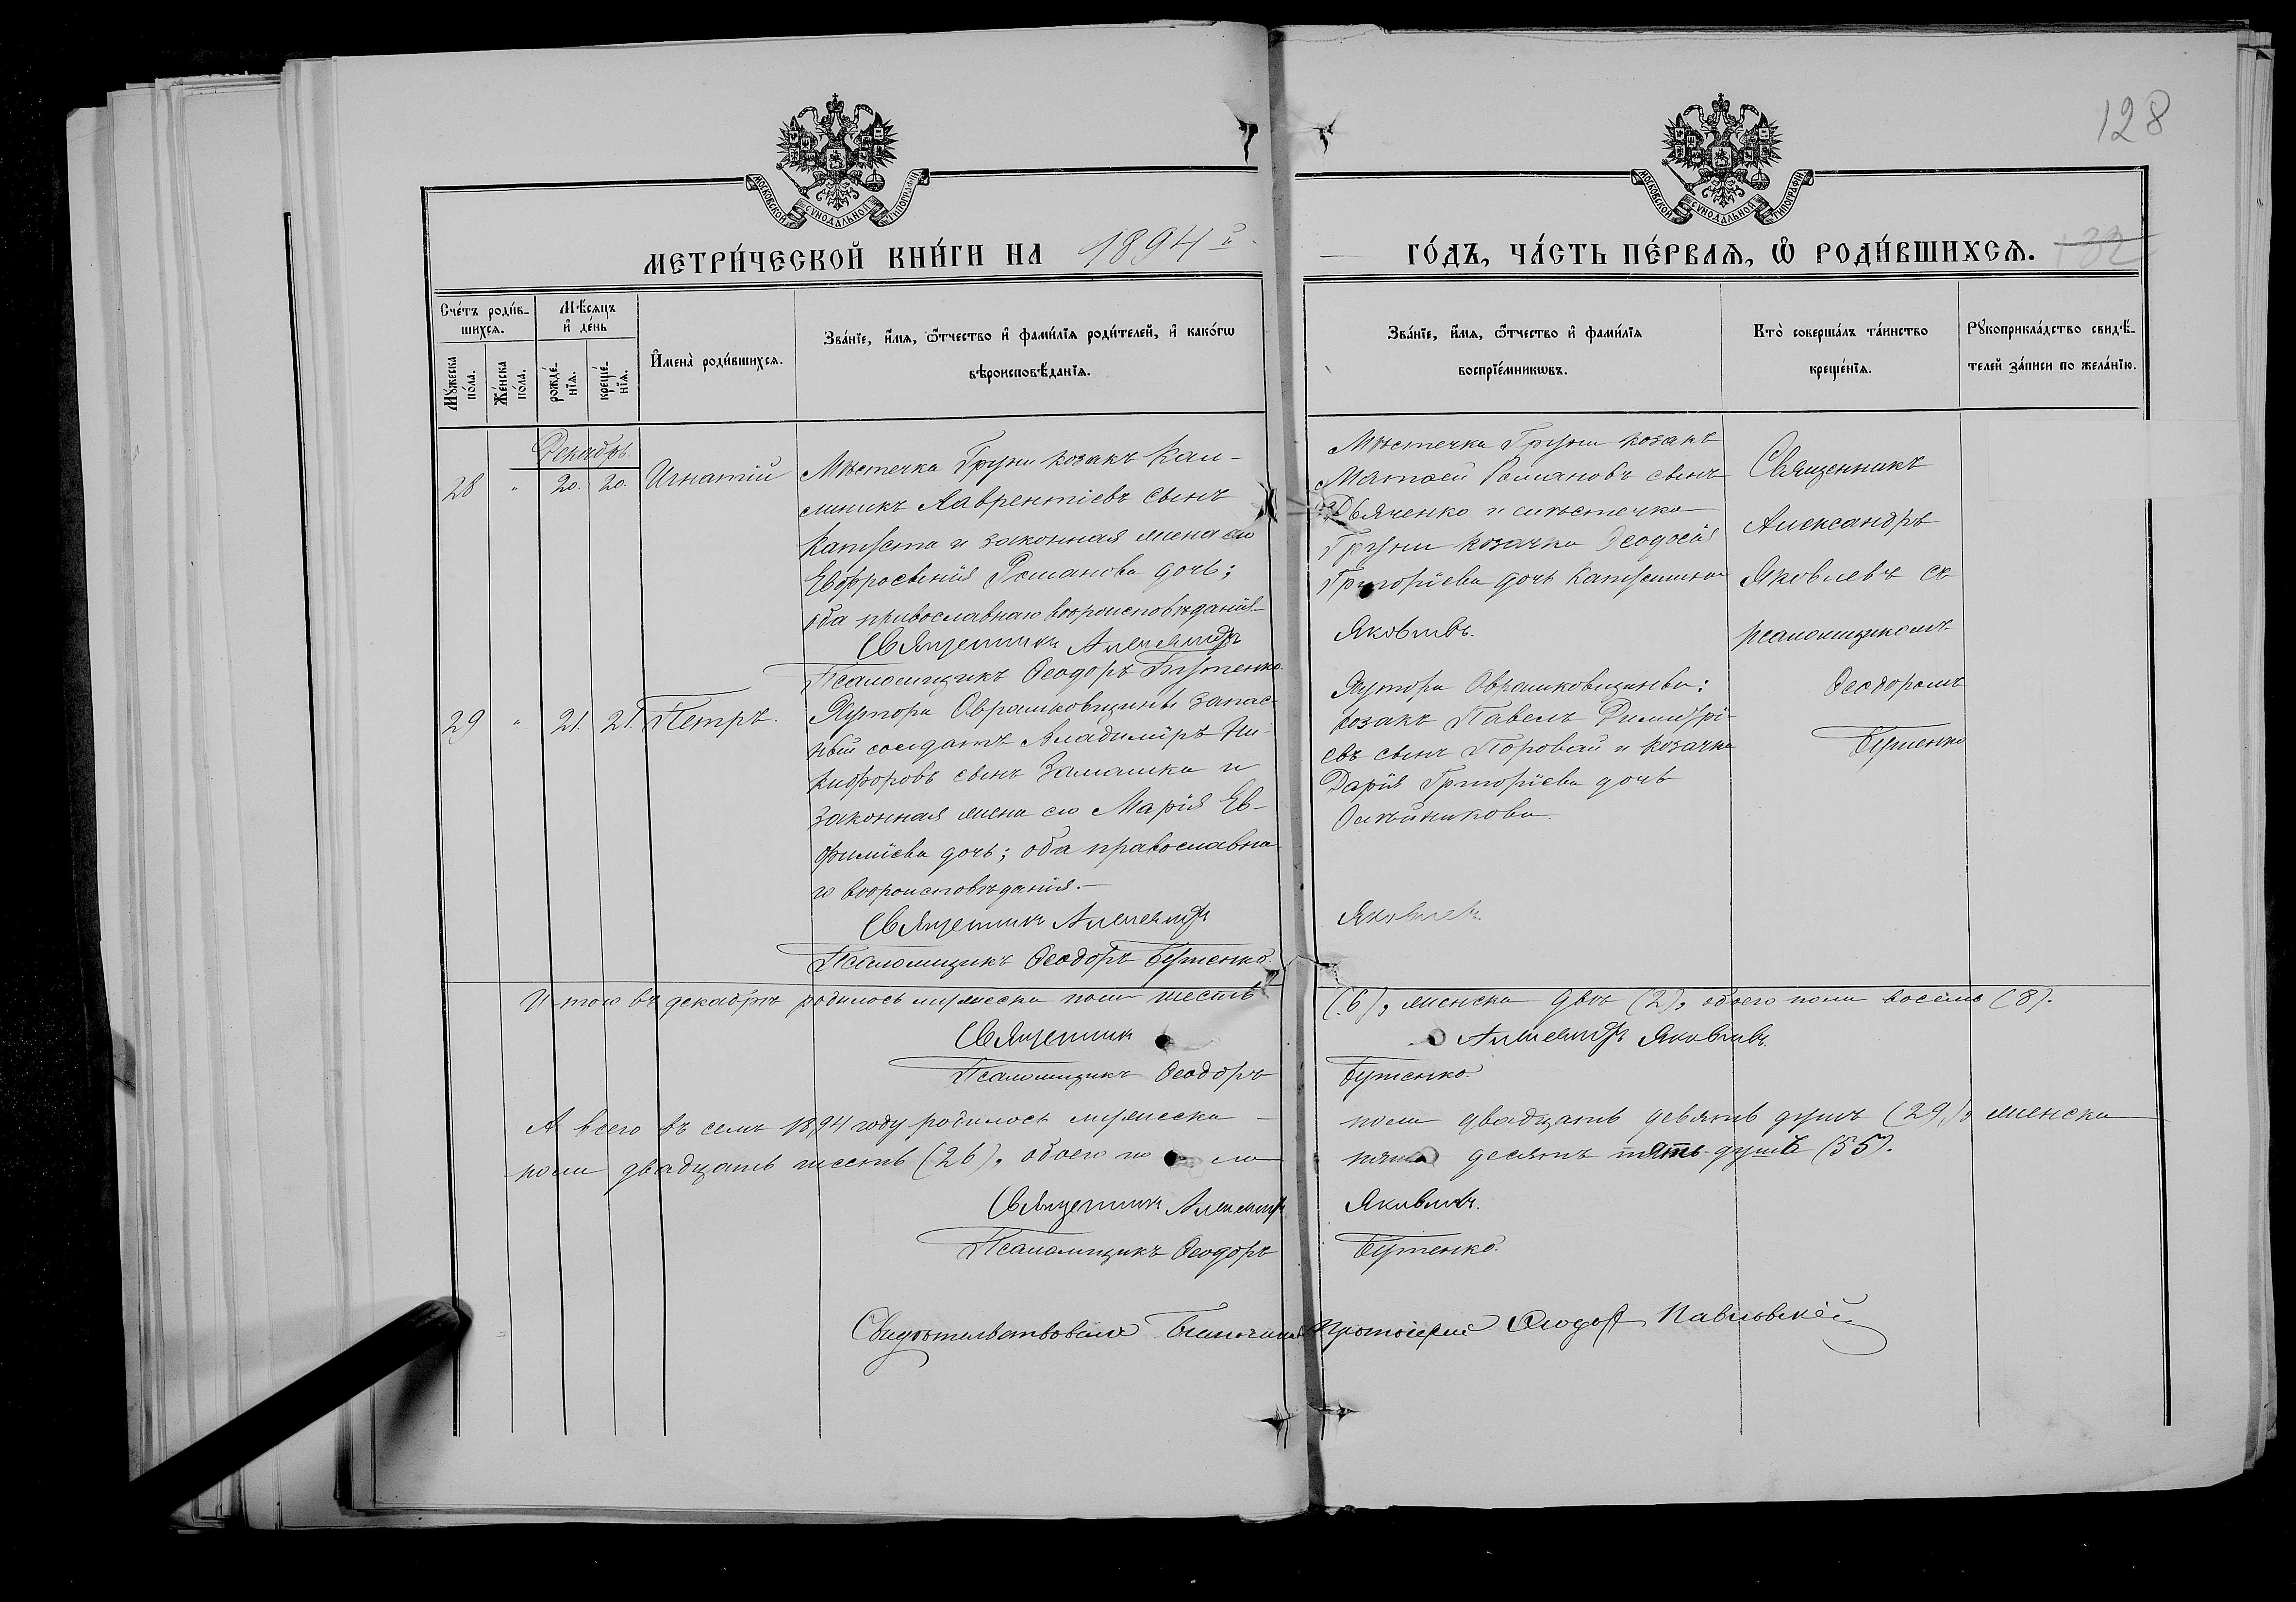 128
МОСКОВСКОЙ СѴНОДАЛЬНОЙ ТИПОГРАФІИ
МОСКОВСКОЙ СѴНОДАЛЬНОЙ ТИПОГРАФІИ
МЕТРИ́ЧЕСКОЙ КНИ́ГИ НА 1894 й
ГО́ДЪ, ЧА́СТЬ ПЕ́РВАѦ, Ѡ РОДИ́ВШИХСѦ. 132
Сче́тъ роди́в-
шихсѧ.
Мꙋ́жеска
по́ла.
Же́нска
по́ла.
Мѣ́сѧцъ
и҆ де́нь
рожде́-
нїѧ.
креще́-
нїѧ.
И҆мена̀ роди́вшихсѧ.
Зва́нїе, и҆́мѧ, ѻ҆́тчество и҆ фами́лїѧ роди́телей, и҆ како́гѡ
вѣроисповѣ́данїѧ.
Зва́нїе, и҆́мѧ, ѻ҆́тчество и҆ фами́лїѧ
воспрїе́мникѡвъ.
Кто̀ соверша́лъ та́инство
креще́нїѧ.
Рꙋкоприкла́дство свидѣ́-
телей за́писи по жела́нїю.
Декабрь.
28 " 20. 20. Игнатій
Мѣстечка Груни козакъ Кали-
никъ Лаврентіевъ сынъ
Капуста и законная жена его
Евфросинія Романова дочь;
оба православнаго вѣроисповѣданія
Священникъ Александръ
Псаломщикъ Ѳеодоръ Бутенко.
Мѣстечка Груни козакъ
Матѳей Романовъ сынъ
Дьяченко и мѣстечка
Груни козачка Ѳеодосія
Григоріева дочь
Яковлевъ.
Священникъ
Александръ
Яковлевъ съ
псаломщикомъ
Ѳеодоромъ
Бутенко
29 " 21. 21. Петръ.
Хутора Аврамковщины запас-
ный солдатъ Владиміръ Ни-
кифоровъ сынъ и
законная жена его Марія Ев-
фиміева дочь; оба православна-
го вѣроисповѣданія.—
Священникъ Александръ
Псаломщикъ Ѳеодоръ Бутенко.
Хутора Аврамковщины:
козакъ Павелъ Димитрі-
евъ сынъ Поровай и козачка
Дарія Григоріева дочь
Олѣйникова
Яковлевъ.
Итого въ декабрѣ родилось мужеска пола шесть (6), женска двѣ (2), обоего пола восемь (8).
Священникъ Александръ Яковлевъ.
Псаломщикъ Ѳеодоръ Бутенко.
А всего въ семъ 1894 году родилось мужеска — пола двадцать девять душъ (29), женска
пола двадцать шесть (26), обоего пола пять десятъ пять душъ (55).
Священникъ Александръ Яковлевъ.
Псаломщикъ Ѳеодоръ Бутенко.
Свидѣтельствовалъ Благочинный Протоіерей Ѳеодоръ Павловскій